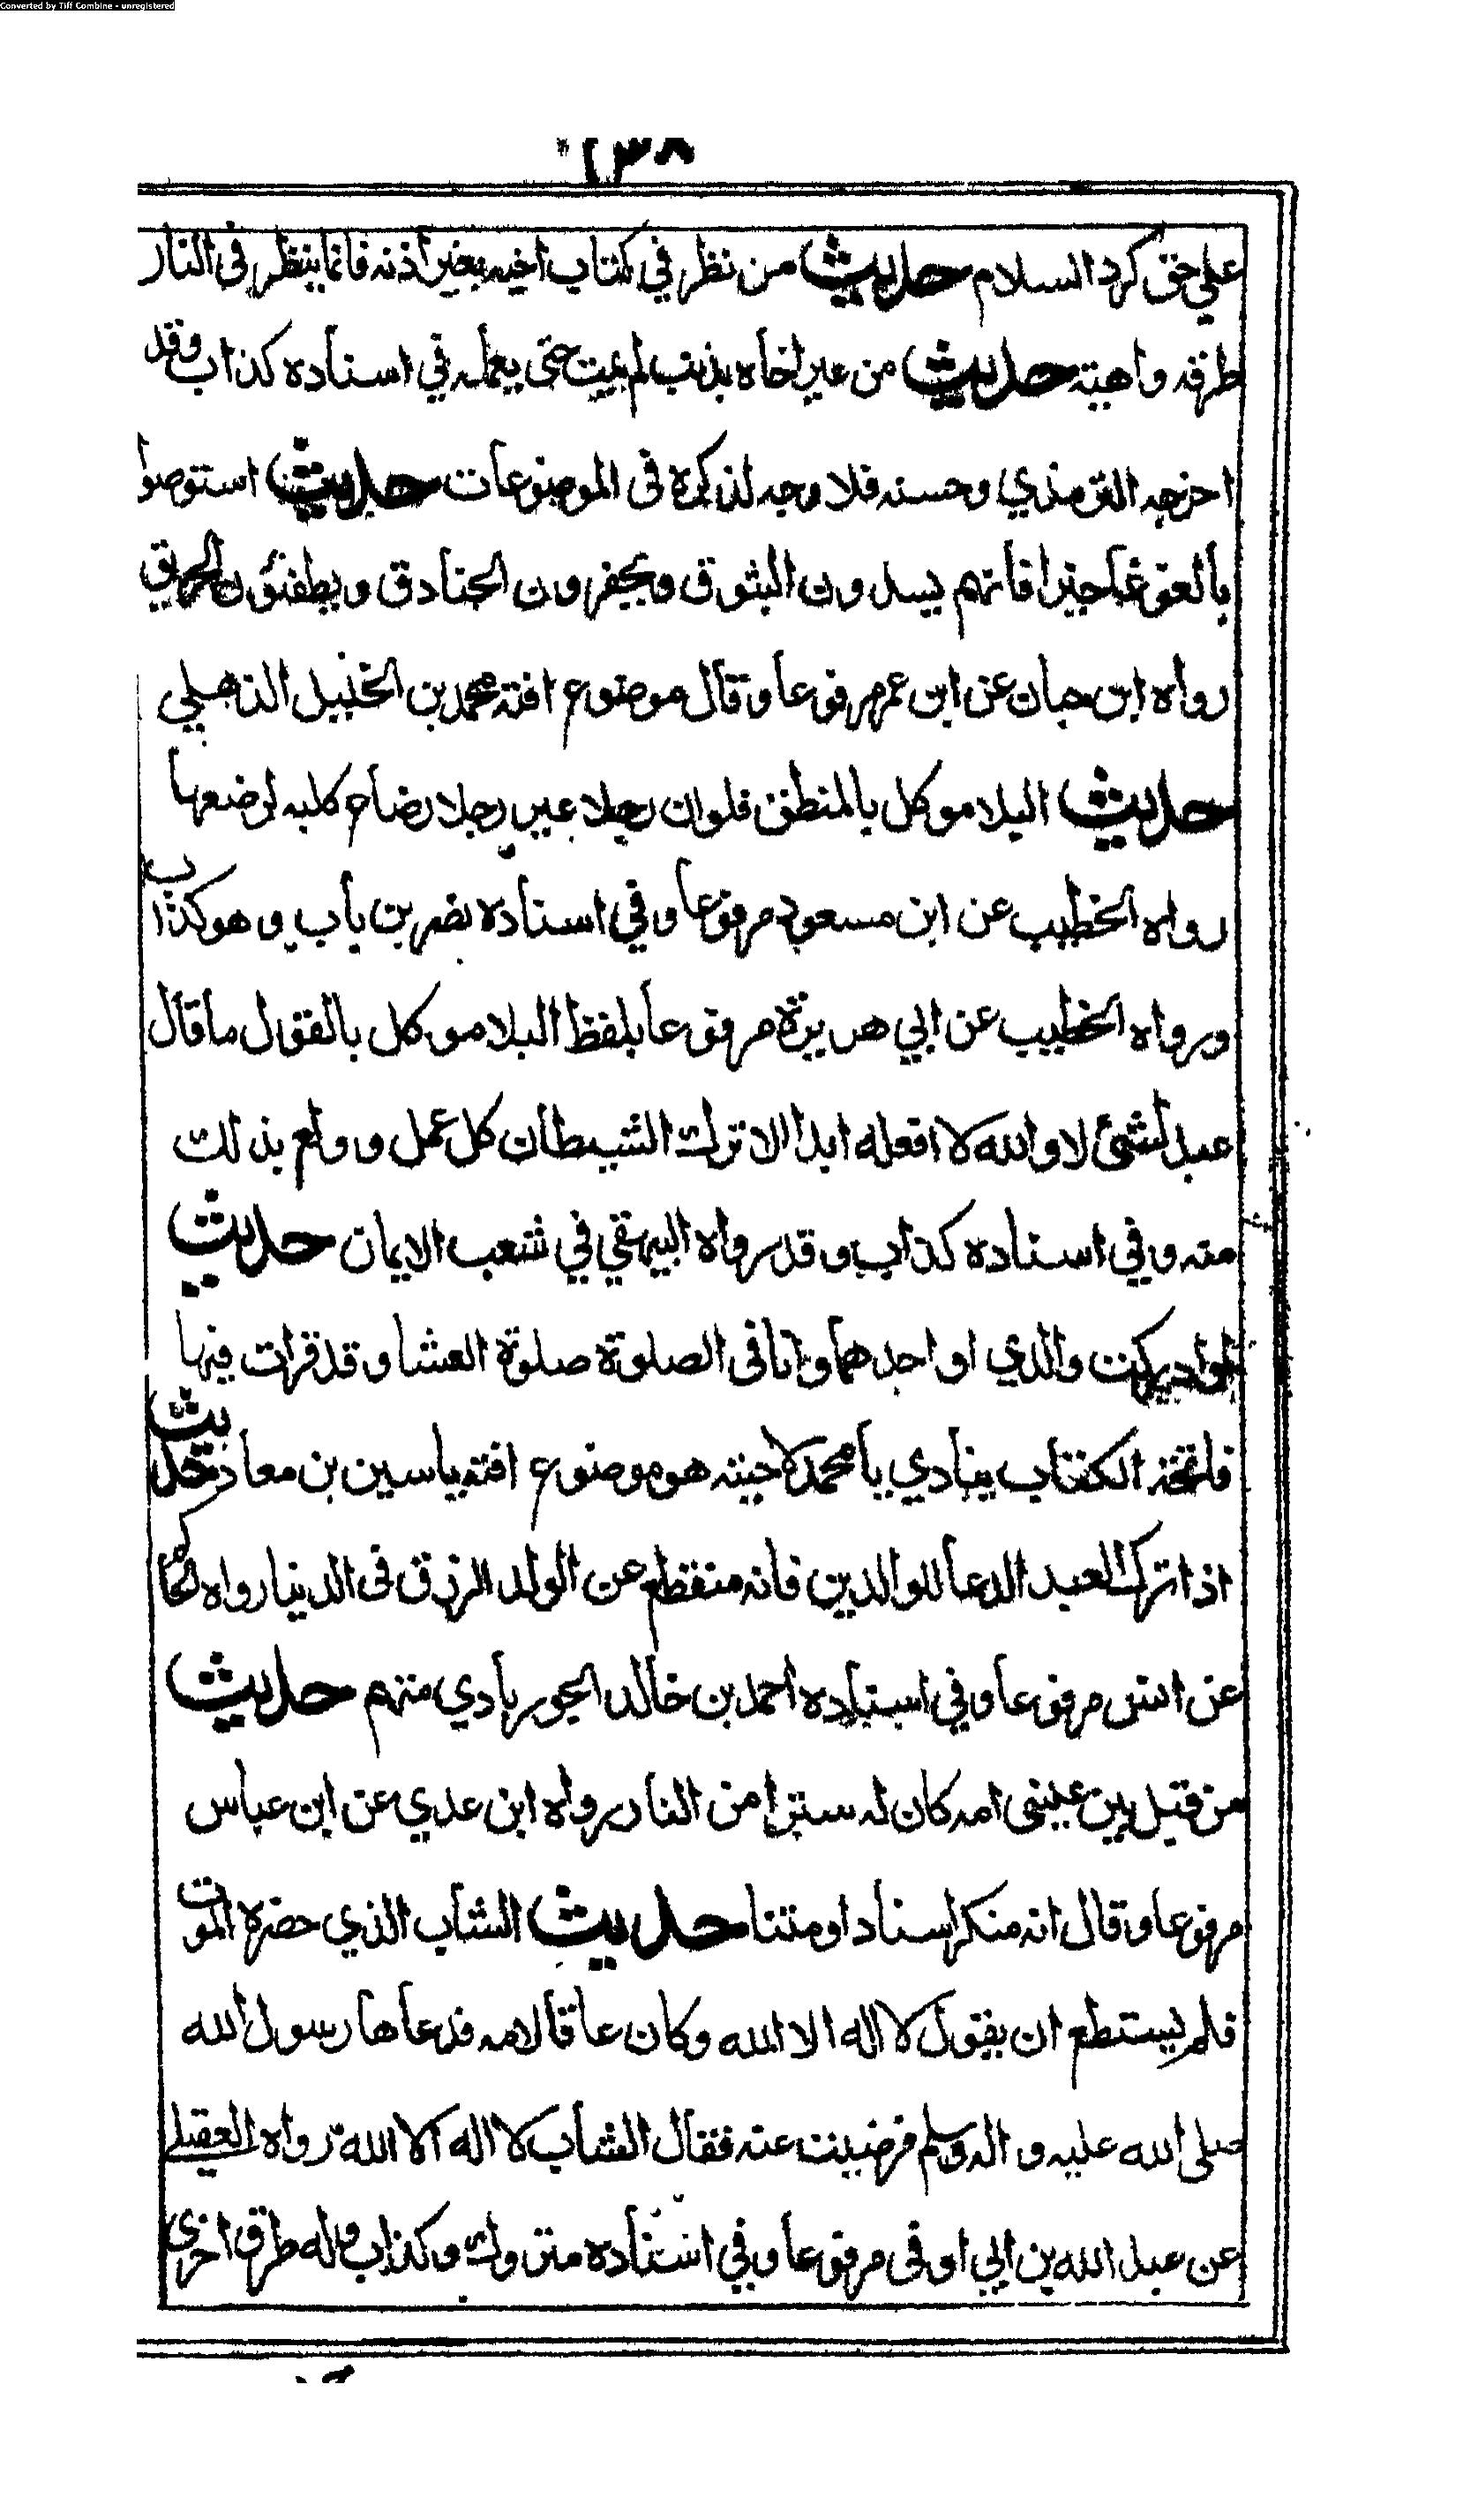 Converted by Tiff Combine - unregistered
١٣٨
علي حق كرد السلام حديث من نظر في كتاب اخيه بغير اذنه فانما ينظر في النار
طرقه واهية حديث من عير اخاه بذنب لم يمت حتى يعمله في اسناده كذاب وقد
اخرجه الترمذي وحسنه فلا وجه لذكره في الموضوعات حديث استوصوا
بالغوغا خيرا فانهم يسدون البثوق ويحفرون الخنادق ويطفئون الحريق
رواه ابن حبان عن ابن عمر مرفوعا وقال موضوع افته محمد بن الخليل الذهلي
حديث البلا موكل بالمنطق فلو ان رجلا عير رجلا رضاع كلبه لرضعها
رواه الخطيب عن ابن مسعود مرفوعا وفي اسناده نصر بن باب وهو كذاب
ورواه الخطيب عن ابي هريرة مرفوعا بلفظ البلا موكل بالقول ما قال
عبد لشئ لا والله لا افعله ابدا الا ترك الشيطان كل عمل وولع بذلك
منه وفي اسناده كذاب وقد رواه البيهقي في شعب الايمان حديث
لو ادركت والدي او احدهما وانا في الصلوة صلوة العشا وقد قرات فيها
فاتحة الكتاب ينادي يا محمد لاجبته هو موضوع افته ياسين بن معاذ حديث
اذا ترك العبد الدعا للوالدين فانه منقطع عن الولد الرزق في الدنيا رواه الحاكم
عن انس مرفوعا وفي اسناده احمد بن خالد الجويباري متهم حديث
من قبل بين عيني امه كان له سترا من النار رواه ابن عدي عن ابن عباس
مرفوعا وقال انه منكر اسنادا ومتنا حديث الشاب الذي حضره الموت
فلم يستطع ان يقول لا اله الا الله وكان عاقا لامه فدعاها رسول الله
صلى الله عليه واله وسلم فرضيت عنه فقال الشاب لا اله الا الله رواه العقيلي
عن عبد الله بن ابي اوفى مرفوعا وفي اسناده متروك وكذاب وله طرق اخرى